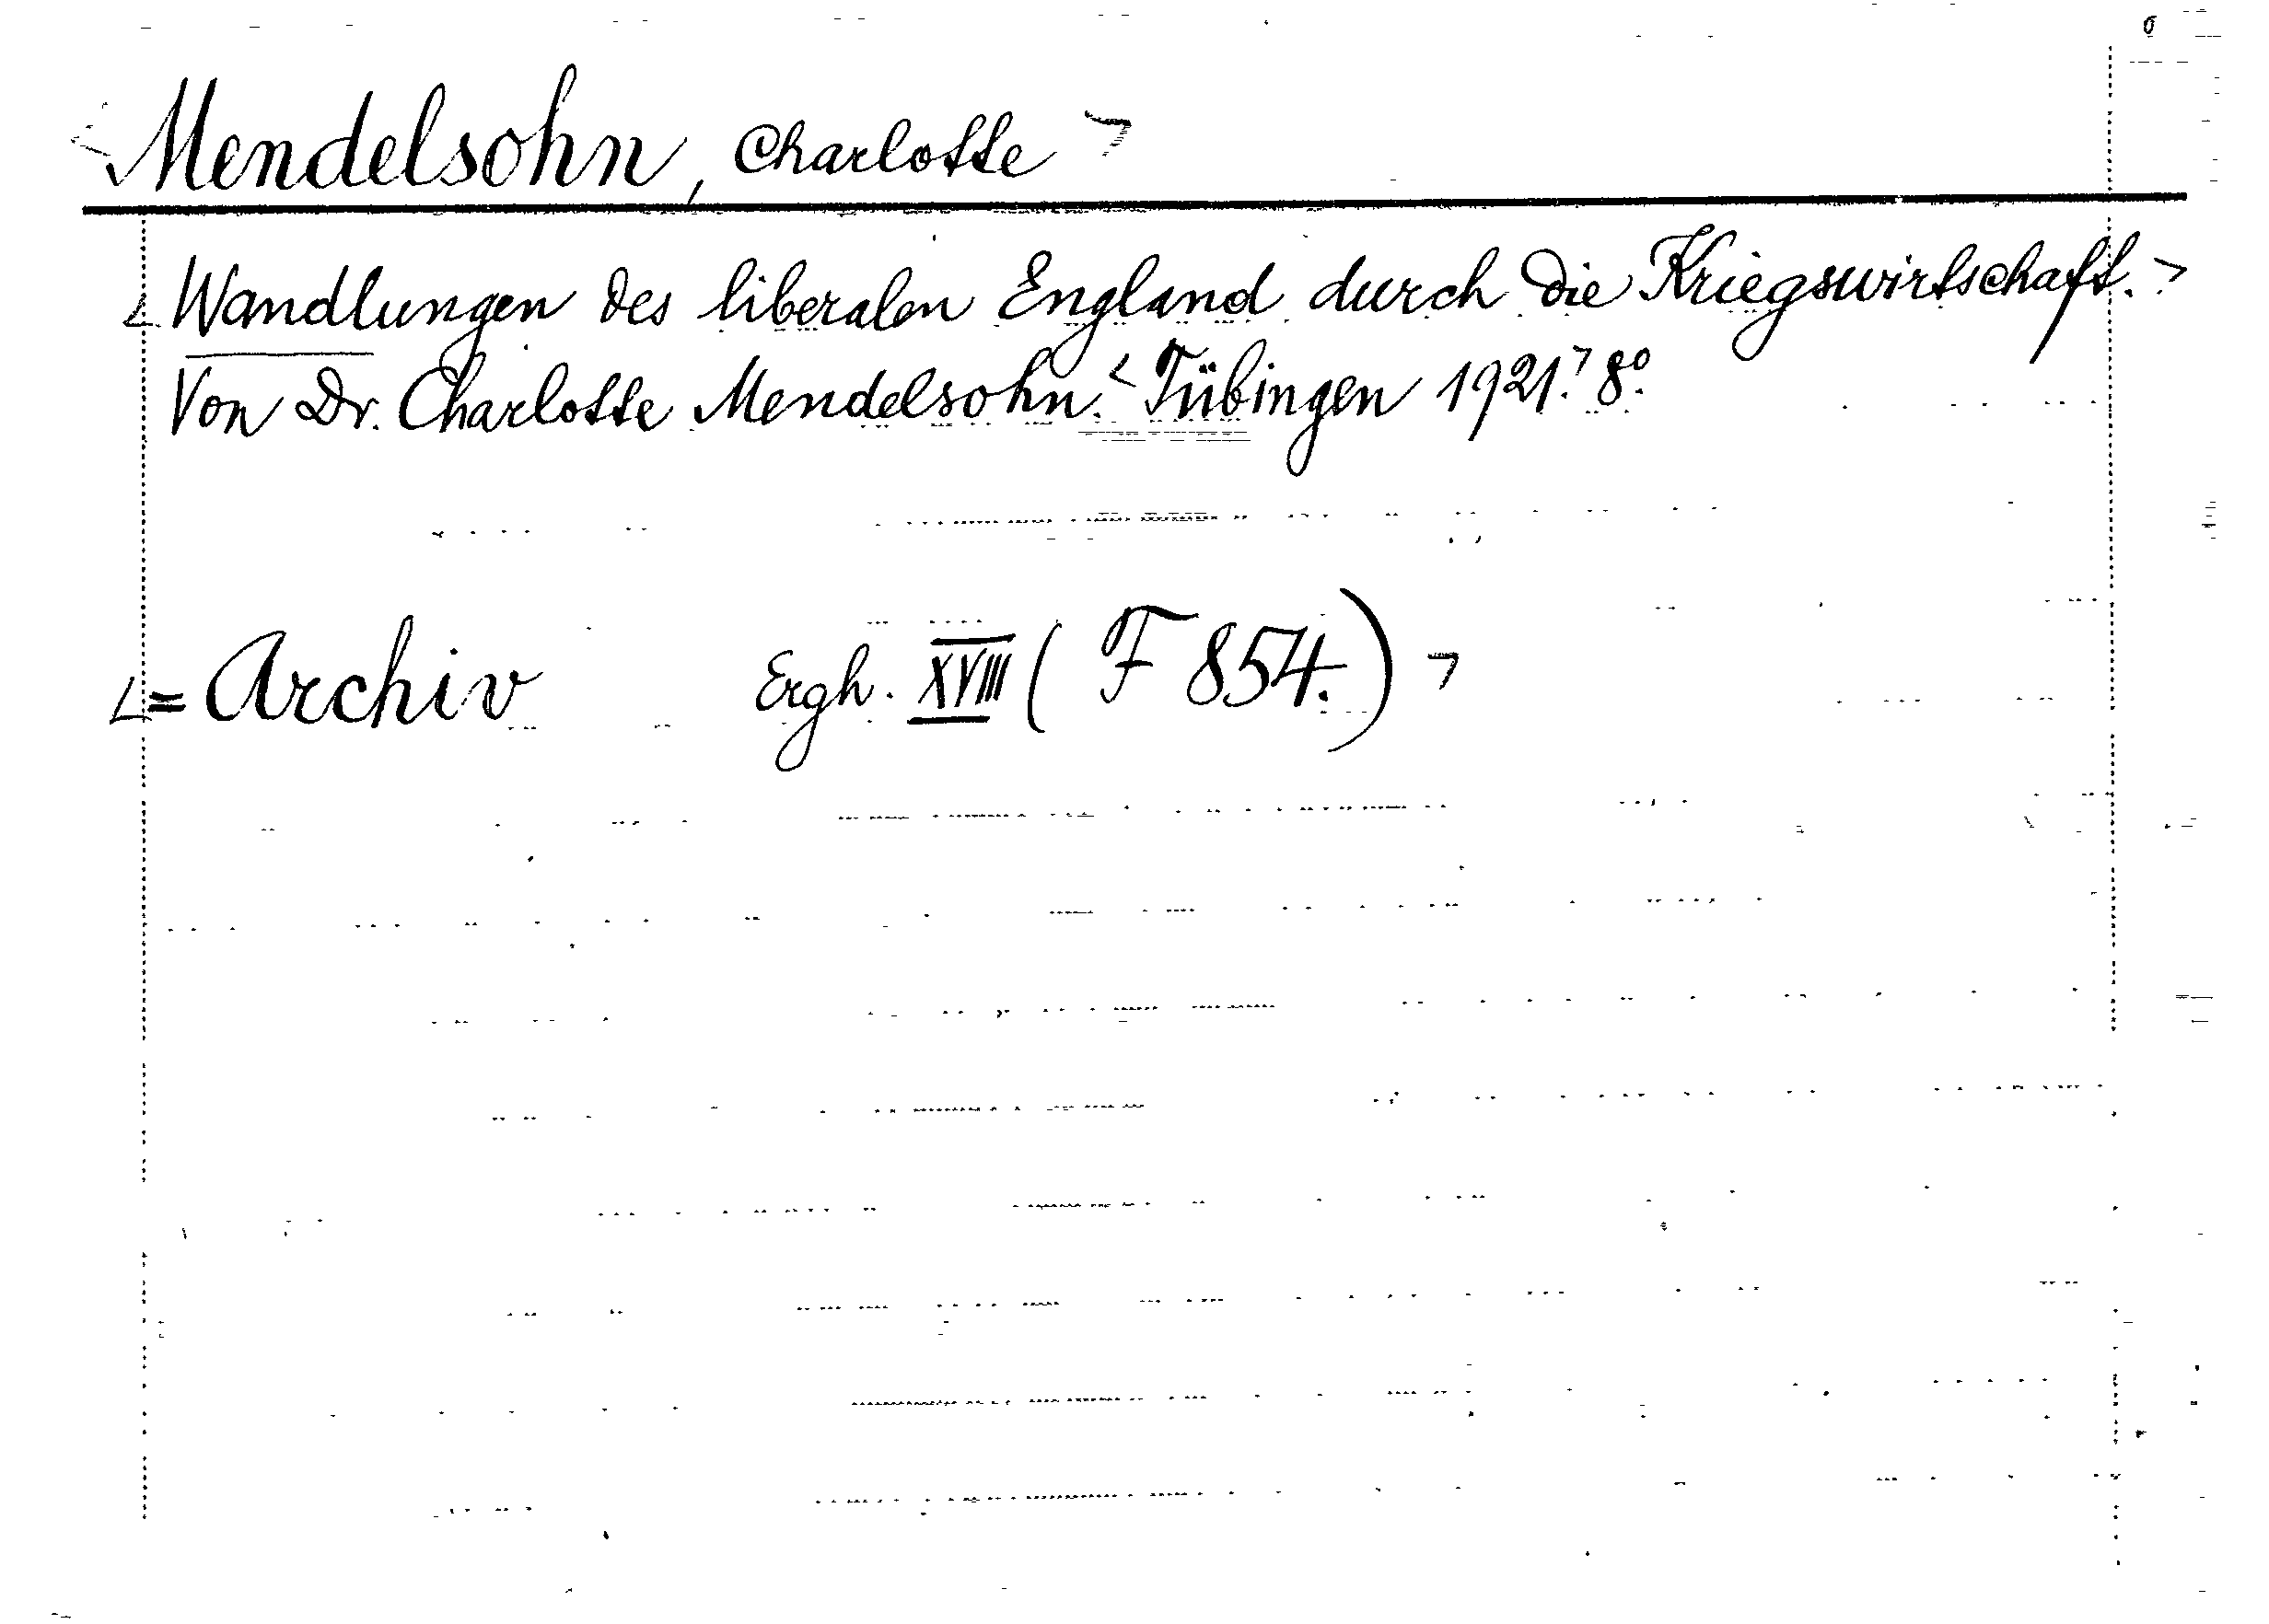 <Mendelsohn, Charlotte>
<Wandlungen des liberalen England durch die Kriegswirtschaft.>
Von Dr. Charlotte Mendelsohn. <Tübingen 1921.> 8º.
<= Archiv Ergh. XVIII (F 854.)>